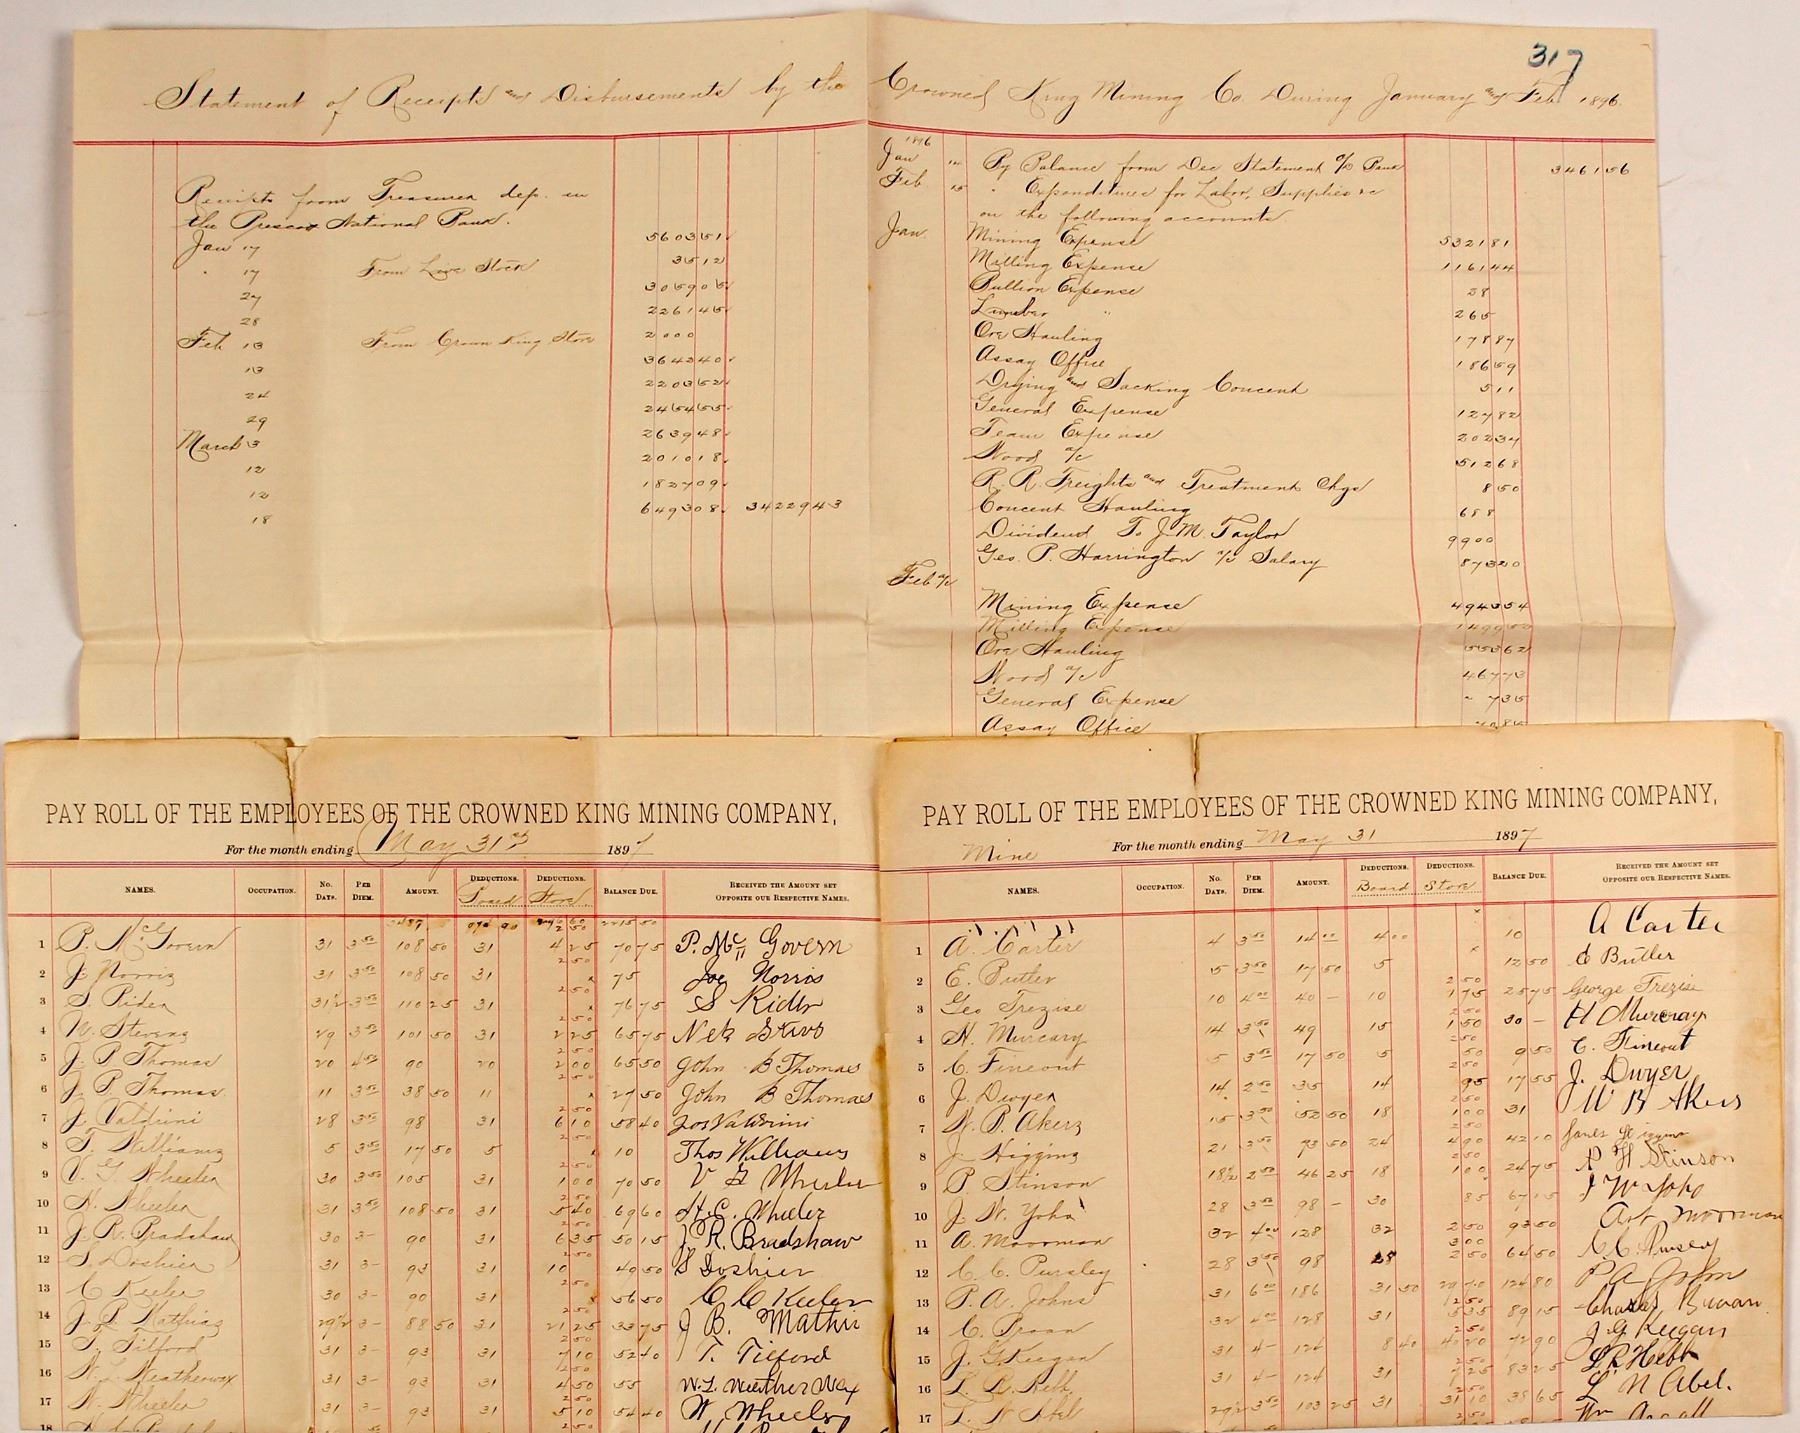 317
Statement of Receipts and Disbursements by the Crowned King Mining Co During January and Feb 1896.
Receipts from Treasurer dep. in
the Prescot National Bank.
Jan 17 5603 51
" 17 From Live Stock 35 12
27 3059 05
28 2261 45
Feb 13 From Crown King Store 20 00
13 3642 40
24 2203 52
29 2454 55
March 3 2639 48
12 2010 18
12 1827 09
18 6493 08 34229 43
1896
Jan By Balance from Dec Statement a/c Bank 3461 56
Feb 15 " Expenditures for Labor, Supplies &c
on the following accounts
Jan Mining Expense 5321 81
Milling Expense 1161 44
Bullion Expense 28
Lumber " 265
Ore Hauling 178 87
Assay Office 186 59
Drying and Sacking Concent 5 11
General Expense 127 82
Team Expense 202 34
Wood a/c 512 68
R. R. Freights and Treatment Chgs 8 50
Concent Hauling 6 88
Dividend To J. M. Taylor 9900
Geo. P. Harrington a/c Salary 873 20
Feb a/c
Mining Expense 4943 54
Milling Expense
Ore Hauling 553 62
Wood a/c 467 73
General Expense 7 35
Assay Office
PAY ROLL OF THE EMPLOYEES OF THE CROWNED KING MINING COMPANY,
For the month ending May 31st 1897
NAMES. OCCUPATION. No. Days. Per Diem. Amount. Deductions. Board Deductions. Store. Balance Due. Received the Amount set opposite our Respective Names.
1 P. McGovern 31 3 50 108 50 31 2 50 4 25 70 75 P. Mc Govern
2 J. Norris 31 3 50 108 50 31 2 50 75 Joe Norris
3 S. Rider 31 1/2 3 50 110 25 31 2 50 76 75 S Rider
4 W. Stevens 29 3 50 101 50 31 2 50 2 25 65 75
5 J. B Thomas 20 4 50 90 20 2 50 2 00 65 50 John B Thomas
6 J. B. Thomas 11 3 50 38 50 11 27 50 John B Thomas
7 J. Valdrini 28 3 50 98 31 2 50 6 10 58 40 Jos Valdrini
8 T. Williams 5 3 50 17 50 5 2 50 10 Thos Williams
9 V. G. Wheeler 30 3 50 105 31 2 50 1 00 70 50 V G Wheeler
10 H. Wheeler 31 3 50 108 50 31 2 50 5 40 69 60 H. C. Wheeler
11 J. R. Bradshaw 30 3 - 90 31 2 50 6 35 50 15 J R. Bradshaw
12 S. Doshier 31 3 - 93 31 2 50 10 49 50 S Doshier
13 C Keeler 30 3 - 90 31 2 50 56 50 C C Keeler
14 J. B Mathis 29 1/2 3 - 88 50 31 2 50 21 25 33 75 J B. Mathis
15 T. Tilford 31 3 - 93 31 2 50 7 10 52 40 T. Tilford
16 W. L. Weatherwax 31 3 - 93 31 2 50 4 50 55 W. L. Weather Wax
17 W. Wheeler 31 3 - 93 31 2 50 5 10 54 40 W. Wheeler
18
PAY ROLL OF THE EMPLOYEES OF THE CROWNED KING MINING COMPANY,
Mine For the month ending May 31 1897
NAMES. OCCUPATION. No. Days. Per Diem. Amount. Deductions. Board Deductions. Store Balance Due. Received the Amount set opposite our Respective Names.
1 A. Carter 4 3 50 14 00 4 00 10 A Carter
2 E. Butler 5 3 50 17 50 5 12 50 E Butler
3 Geo Trezise 10 4 00 40 - 10 2 50 1 75 25 75 George Trezise
4 H. Murcary 14 3 50 49 15 2 50 1 50 30 - H Murcray
5 C. Fineout 5 3 50 17 50 5 2 50 50 9 50 C. Fineout
6 J. Dwyer 14 2 50 35 14 2 50 95 17 55 J. Dwyer
7 W. B. Akers 15 3 50 52 50 18 2 50 1 00 31 W B Akers
8 J. Higgins 21 3 50 73 50 24 2 50 4 90 42 10 James Higgins
9 P. Stinson 18 1/2 2 50 46 25 18 2 50 1 00 24 75 P H Stinson
10 J. W. Yoho 28 3 50 98 - 30 85 67 15 J W Yoho
11 A. Moorman 32 4 00 128 32 2 50 93 50 Art Moorman
12 C. C. Pursley 28 3 50 98 28 3 00 2 50 64 50 C C Pursley
13 P. A. Johns 31 6 00 186 31 50 29 70 124 80 P A John
14 C. Broan 32 4 00 128 31 2 50 5 35 89 15 Charles Buvan.
15 J. G. Keegan 31 4 - 124 8 40 2 50 72 90 J G Keegan
16 L. R. Hebb 31 4 - 124 31 2 50 7 25 83 25 L. R. Hebb
17 L. N Abel 29 1/2 3 50 103 25 31 2 50 31 10 38 65 L N Abel.